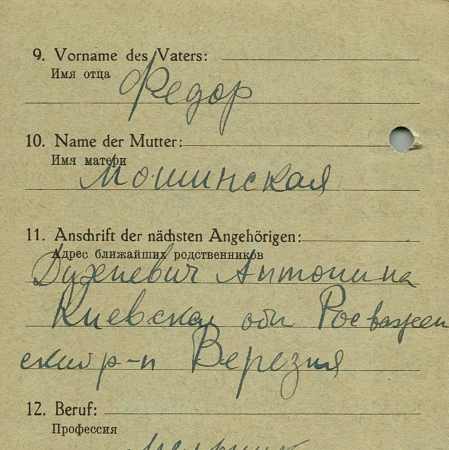 9. Vorname des Vaters:
Имя отца
Федор
10. Name der Mutter:
Имя матери
Мошинская
11. Anschrift der nächsten Angehörigen:
Адрес ближайших родственников
Антонина
Киевская обл
ский р-н Верезня
12. Beruf:
Профессия